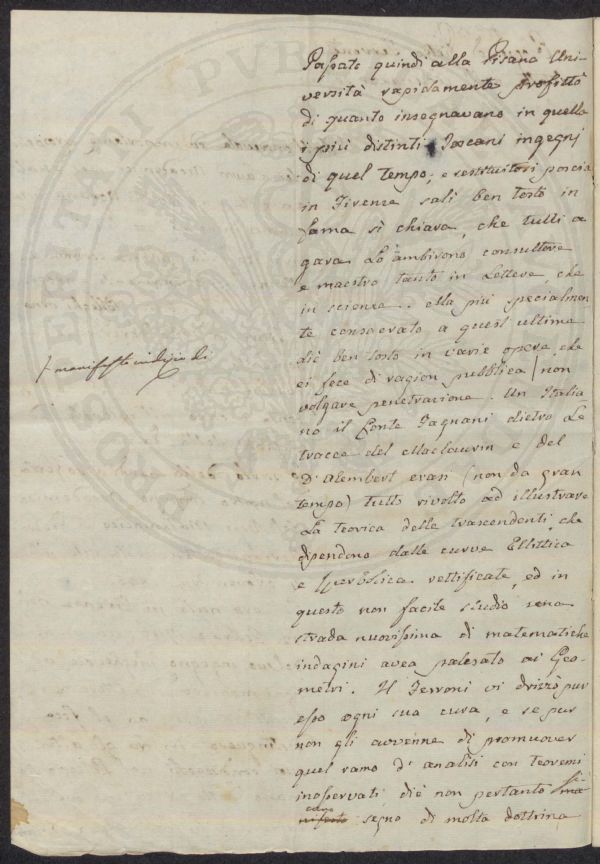 Passato quindi alla Pisana Uni-
versità rapidamente profittò
di quanto insegnavano in quella
i più distinti Toscani ingegnj
di quel tempo; e restituitosi poscia
in Firenze salì ben tosto in
fama sì chiara, che tutti a
gara lo ambirono consultore
e maestro tanto in lettere che
in scienze. Ma più specialmen
te consacrato a quest'ultime
diè ben tosto in varie opere, che
ei fece di ragion pubblica / non
volgare penetrazione. Un Italia
no il Conte Fagnani dietro le
tracce del Maclaurin e del
D'Alembert erasi (non da gran
tempo) tutto rivolto ad illustrare
la teorica delle trascendenti, che
dipendono dalle curve Ellittica
e Iperbolica rettificate, ed in
questo non facile studio
strada nuovissima di matematiche
indagini avea palesato ai Geo-
metri. Il Ferroni vi drizzò pur
esso ogni sua cura, e se pur
non gli avvenne di promuover
quel ramo d'analisi con teoremi
inosservati, diè non pertanto si-
curo segno di molta dottrina
/ manifesto indizio di